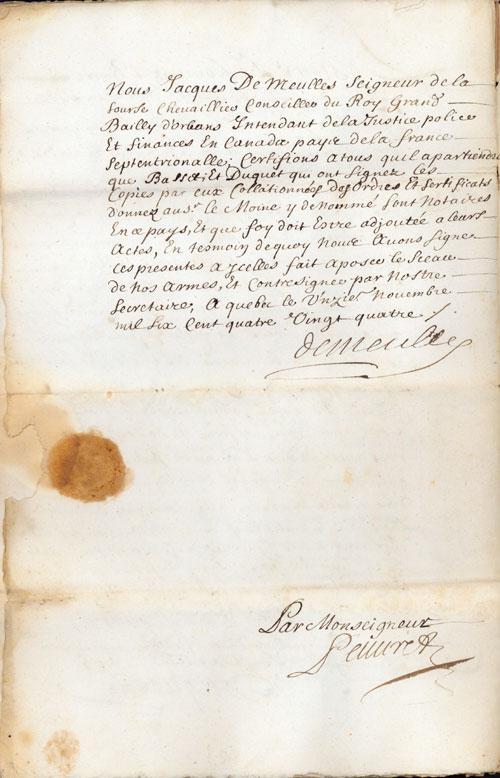 Nous Jacques De Meulles Seigneur de la
Sourse Chevaillier Conseiller du Roy Grand
Bailly d'orleans Intendant de la Justice police
Et finances En Canada païs de la france
Septentrionalle; Certifions a tous quil apartiendra
que Basset Et Duquet qui ont signez les
Copies par eux Collitionnées des Ordres Et sertificats
donnez au sr. le Moine y denommé sont Notaires
En ce pays, Et que foy doit Estre adjoutée a leurs
Actes, En tesmoin de quoy Nous Avons Signé
ces presentes a Jcelles fait aposer le Sceau
de Nos Armes, Et Contresigner par Nostre
Secretaire, A quebec le Unzie. Novembre
mil Six Cent quatre Vingt quatre /.
demeulles
Par Monseigneur
Peuuret